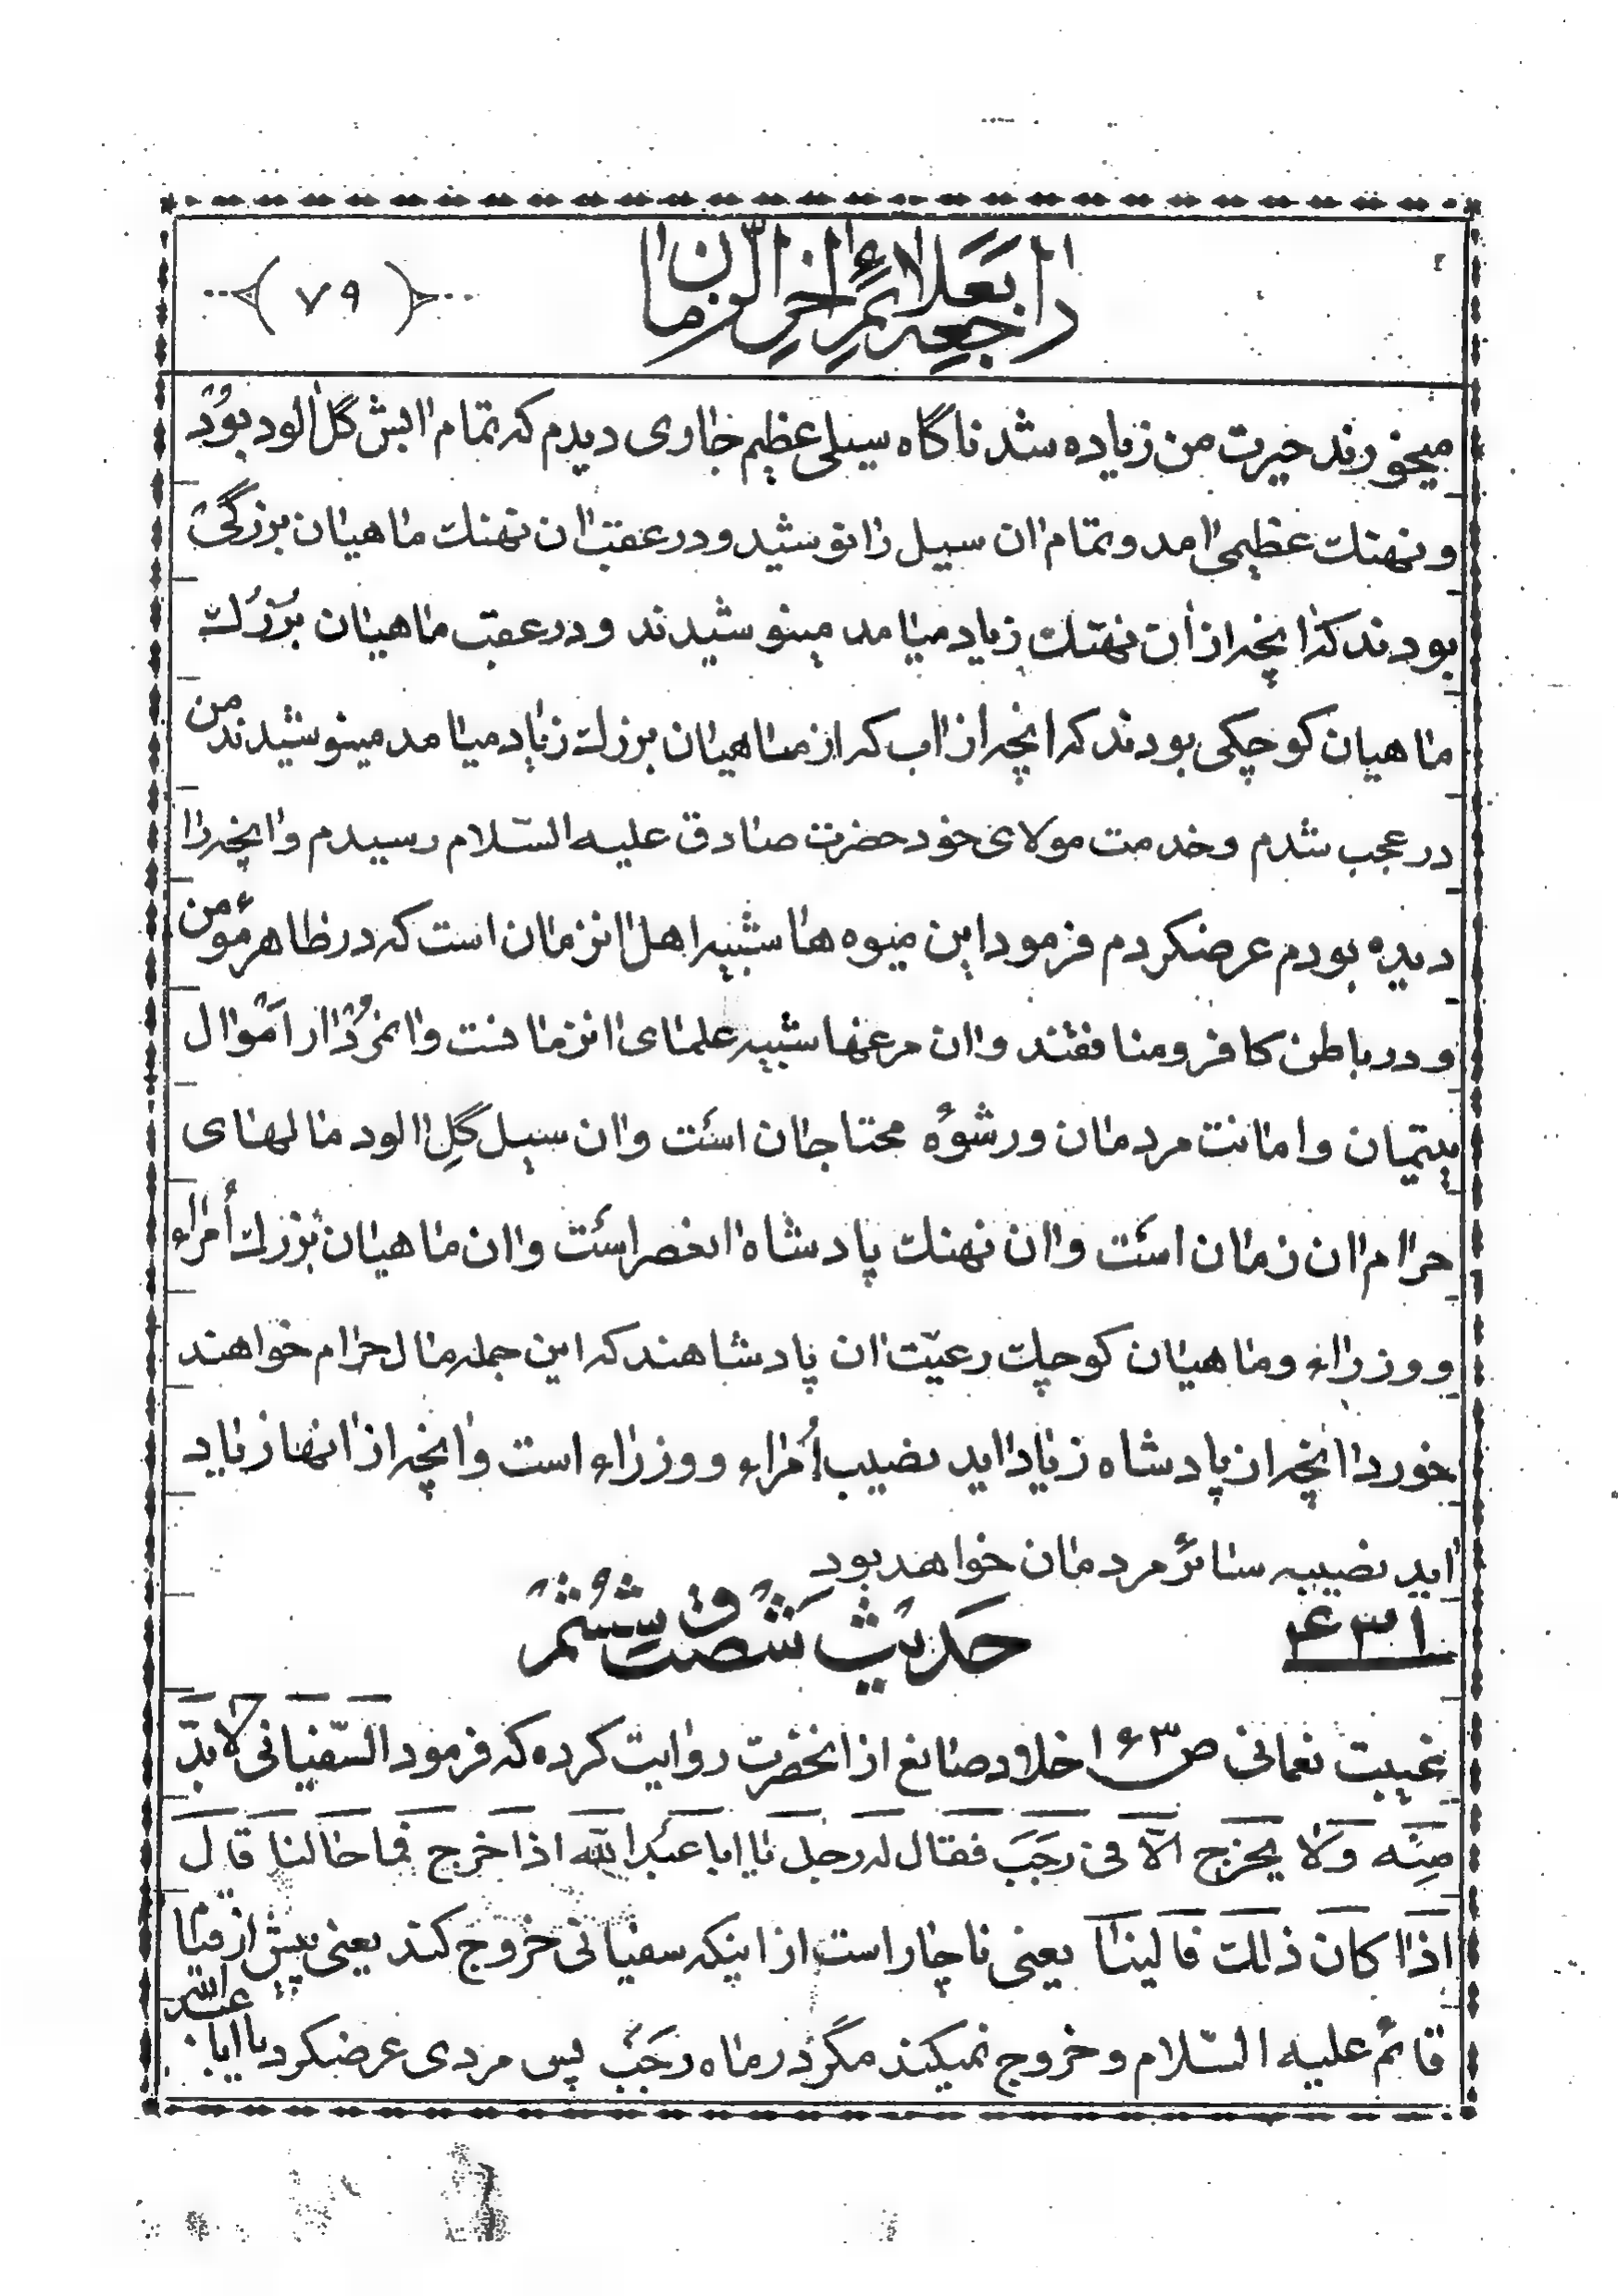 راجعه بعلائم اخر الزمان
(۷۹)
میخورند حیرت من زیاده شد ناگاه سیلی عظیم جاری دیدم که تمام ابش گل الود بود
و نهنک عظیمی امد و تمام ان سیل را نوشید و در عقب ان نهنک ماهیان بزرگی
بودند که انچه از ان نهنک زیاد میامد مینوشیدند و در عقب ماهیان بزرک
ماهیان کوچکی بودند که انچه از اب که از ماهیان بزرک زیاد میامد مینوشیدند من
در عجب شدم و خدمت مولای خود حضرت صادق علیه السّلام رسیدم و انچه را
دیده بودم عرضکردم فرمود این میوه ها شبیه اهل انزمان است که در ظاهر مؤمن
و در باطن کافر و منافقند و ان مرغها شبیه علمای انزمانست و انمردار اموال
یتیمان و امانت مردمان و رشوه محتاجان است و ان سیل گل الود مالهای
حرام ان زمان است و ان نهنک پادشاه انعصر است و ان ماهیان بزرک أمراء
و وزراء و ماهیان کوچک رعیّت ان پادشاهند که این جمله مال حرام خواهند
خورد انچه از پادشاه زیاد اید نصیب أمراء و وزراء است و انچه از انها زیاد
اید نصیبه سائر مردمان خواهد بود
۶۳۱ حدیث شصت و ششم
غیبت نعمانی ص ۱۶۳ خلاد صانع از انحضرت روایت کرده که فرمود السّفیانی لا بدّ
منه و لا یخرج الّا فی رجب فقال له رجل یا ابا عبد الله اذا خرج فما حالنا قال
اذا کان ذلک فالینا یعنی ناچار است از اینکه سفیانی خروج کند یعنی پیش از قیام
قائم علیه السّلام و خروج نمیکند مگر در ماه رجب پس مردی عرضکرد یا ابا عبد الله